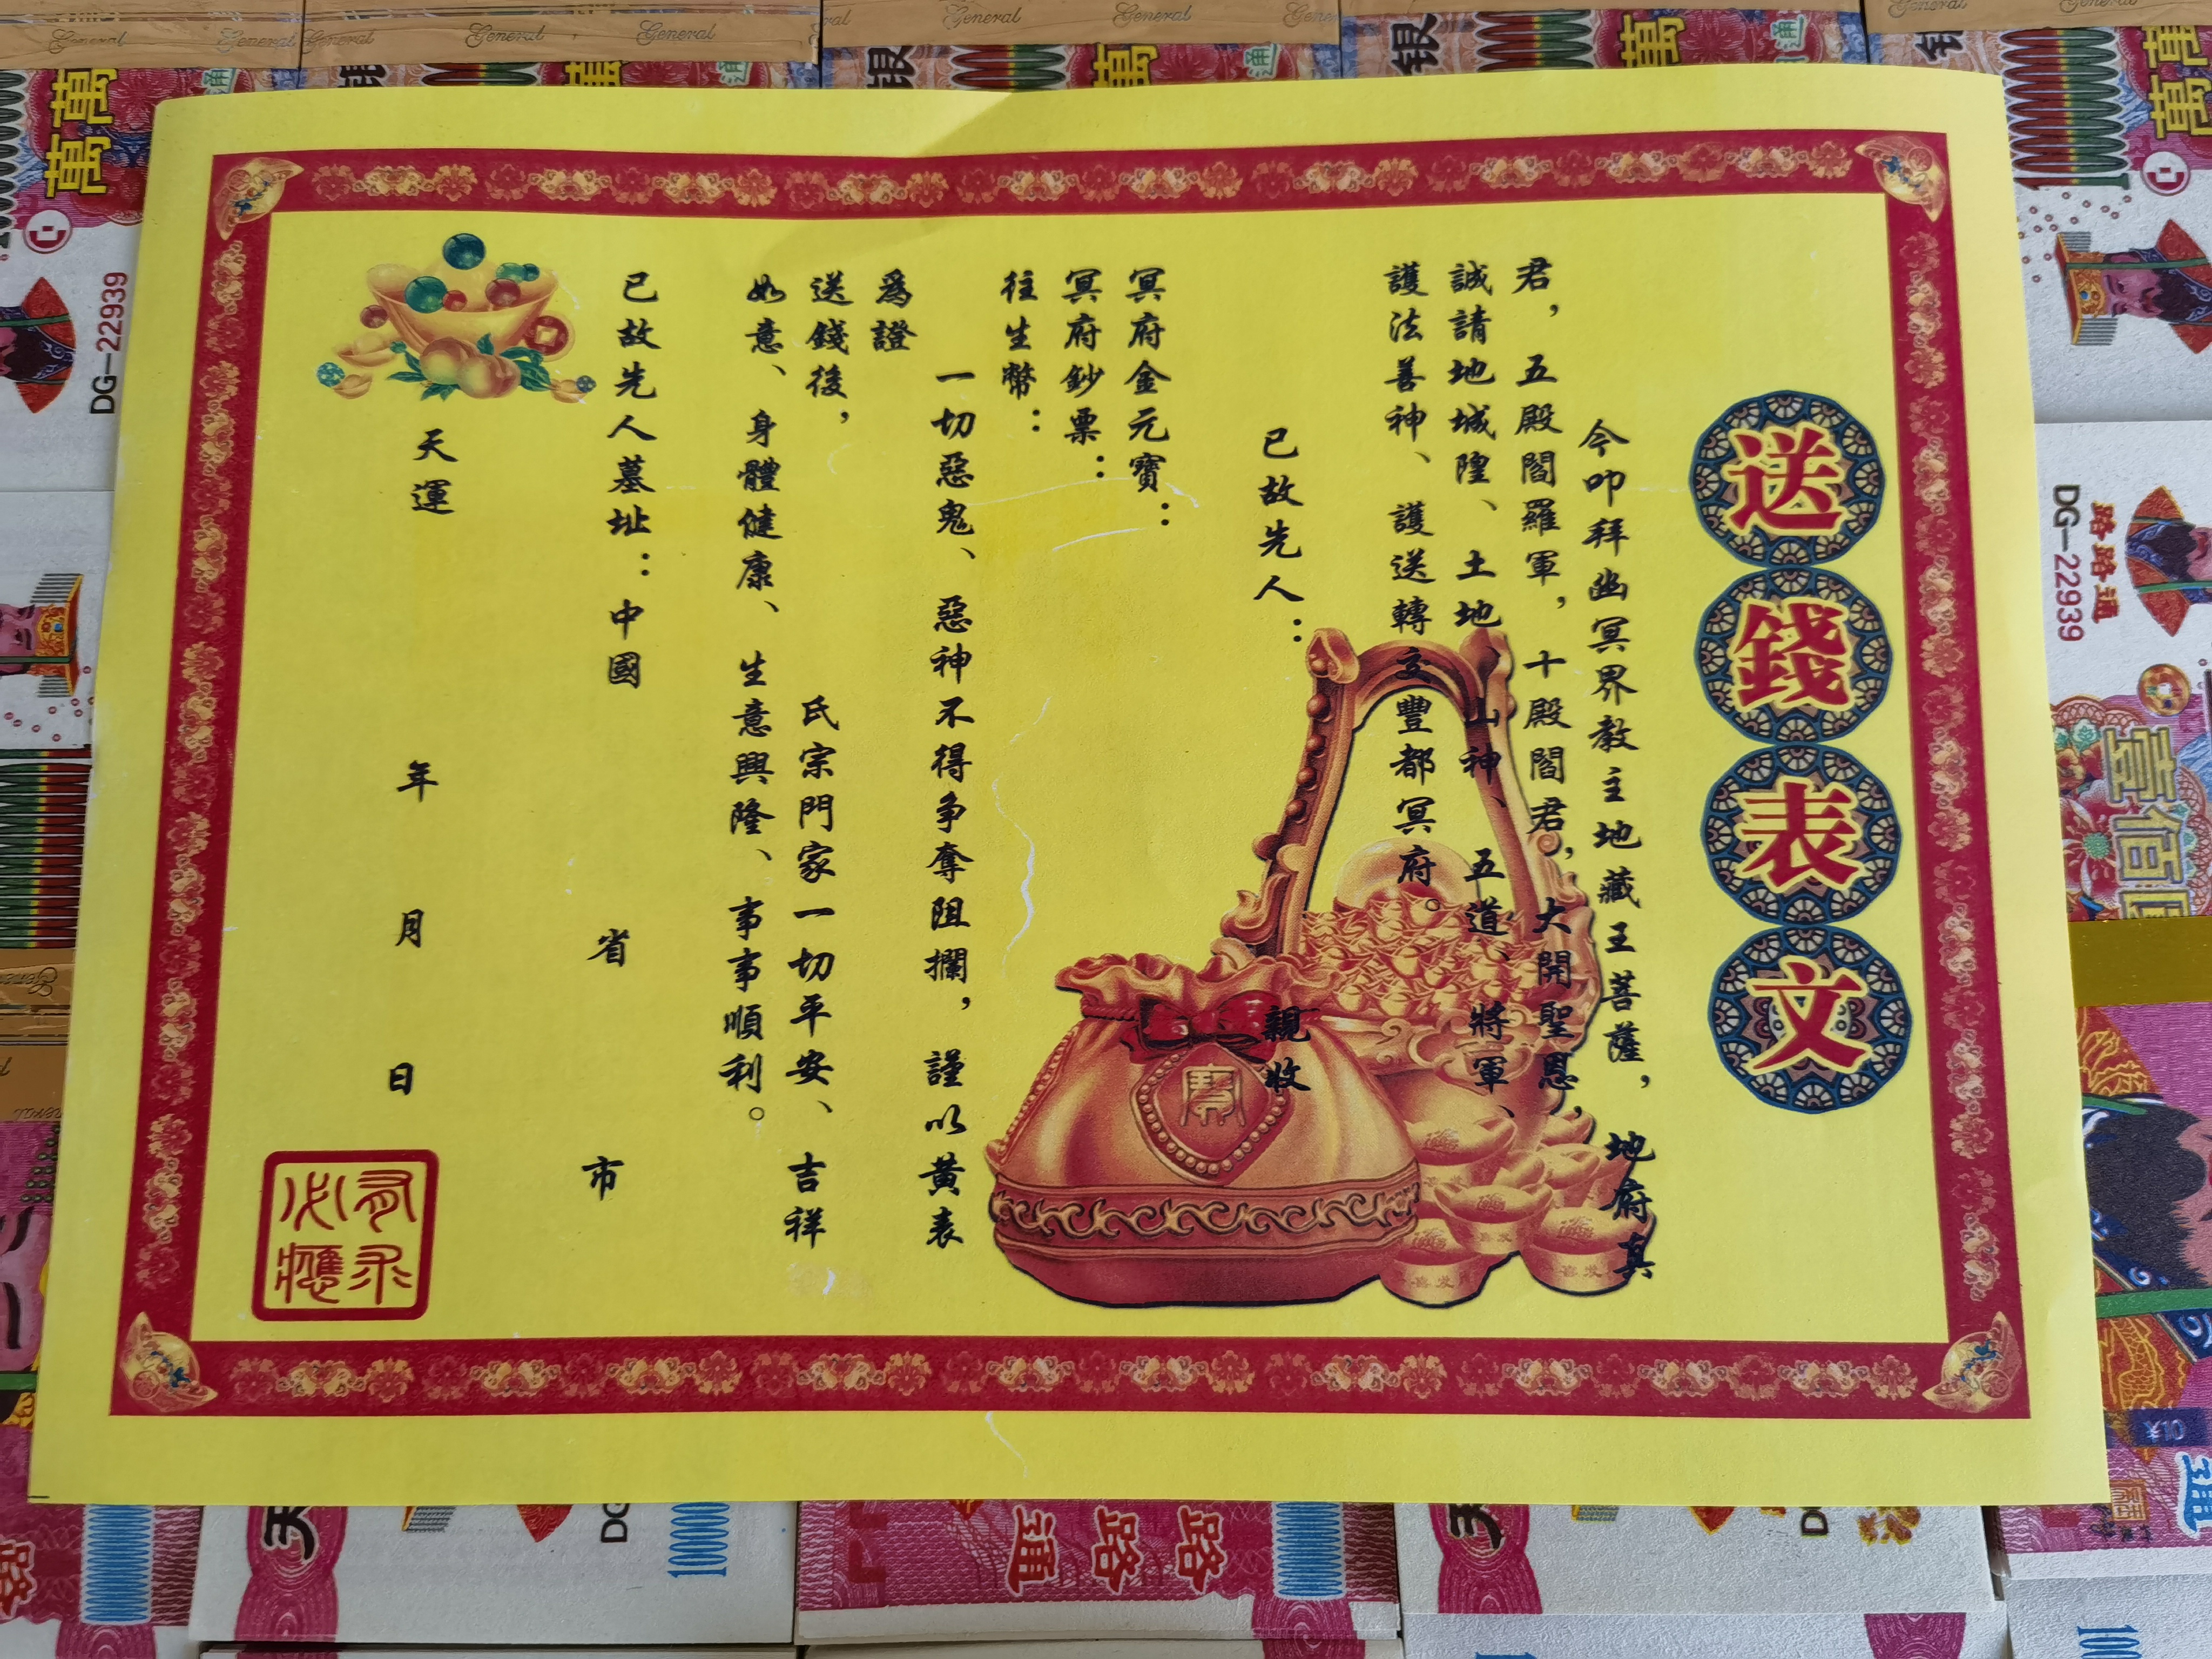 送錢表文
今叩拜幽冥界教主地藏王菩薩，地府真
君，五殿閻羅軍，十殿閻君，大開聖恩，
誠請地城隍、土地、山神、五道、將軍、
護法善神、護送轉交豐都冥府。
已故先人：親收
冥府金元寶：
冥府鈔票：
往生幣：
一切惡鬼、惡神不得争奪阻攔，謹以黃表
爲證
送錢後，氏宗門家一切平安、吉祥
如意、身體健康、生意興隆、事事順利。
已故先人墓址：中國省市
天運年月日
有求
必應
General
General
General
General
General
General
萬萬
DG-22939
DG-22939
路路通
路路通
¥10